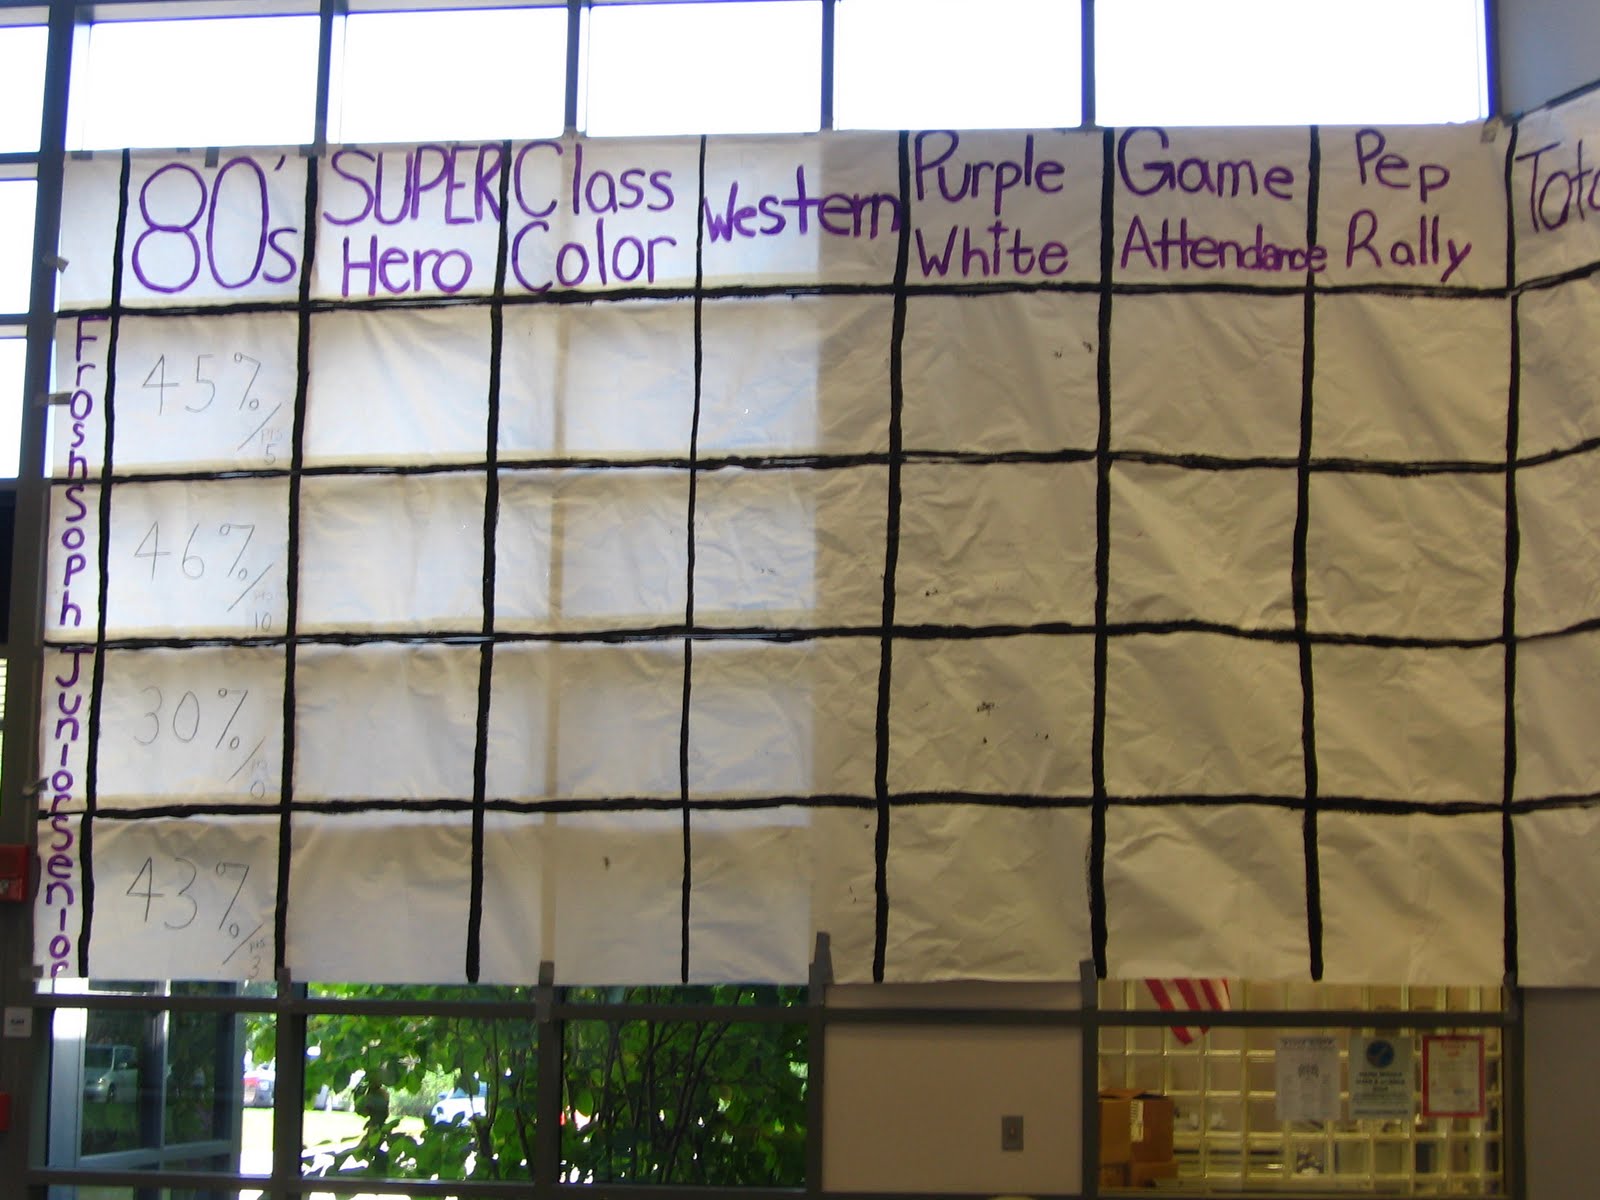 80's
SUPER
Hero
Class
Color
Western
Purple
White
Game
Attendance
Pep
Rally
Frosh
45%
5
Soph
46%
10
Junior
30%
0
Senior
43%
pts
3